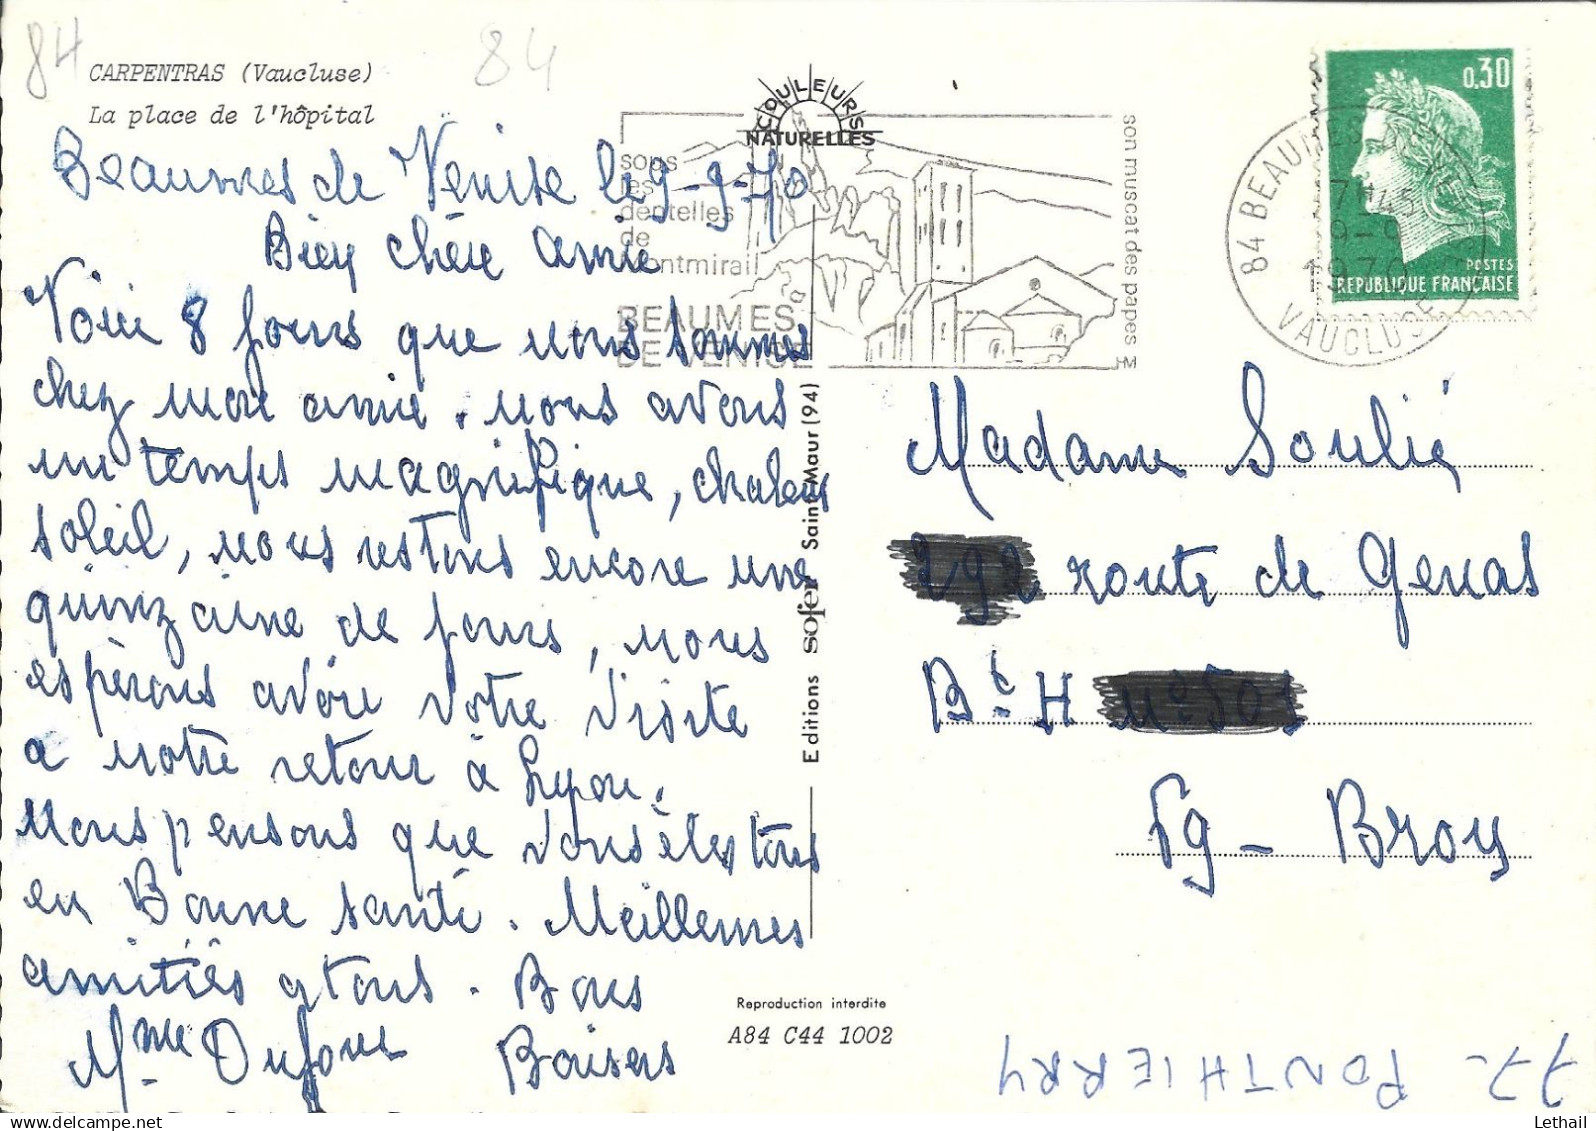 84
84
CARPENTRAS (Vaucluse)
La place de l'hôpital
COULEURS
NATURELLES
sous
les
dentelles
de
montmirail
BEAUMES
DE VENISE
son muscat des papes
0,30
POSTES
REPUBLIQUE FRANÇAISE
84 BEAUMES DE VENISE
17H45
9-9
1970
VAUCLUSE
Beaumes de Venise le 9-9-70
Bien chère amie
Voici 8 jours que nous sommes
chez mon amie. nous avons
un temps magnifique, chaleur
soleil, nous restons encore une
quinzaine de jours, nous
espèrons avoir votre visite
a notre retour à Lyon.
Nous pensons que vous êtes tous
en Bonne santé. Meilleures
amitiés a tous. Bons
Mme Dufour Baisers
Editions sofer Saint-Maur (94)
Madame Soulié
route de Genas
Bt H n° 501
Pg - Bron
Reproduction interdite
A84 C44 1002
77- PONTHIERRY
Lethail